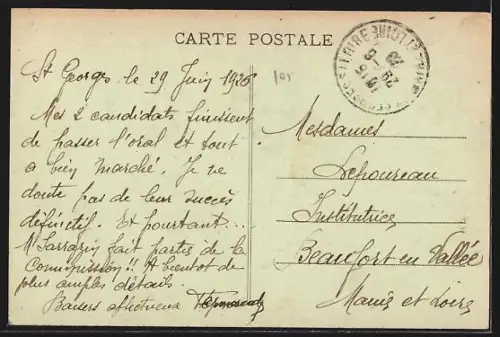 CARTE POSTALE
St Georges le 29 Juin 1926
Mes 2 candidats finissent
de passer l'oral et tout
a bien marché. Je ne
doute pas de leur succès
définitif. Et pourtant...
Mr Sarrazin fait partie de la
Commission!! A bientôt de
plus amples détails.
Baisers affectueux
Mesdames
Lepoureau
Institutrices
Beaufort en Vallée
Maine et Loire